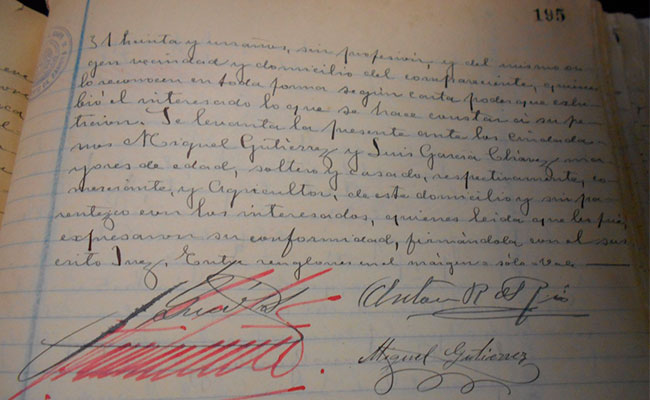 195
31 treinta y un años, sin profesión, y del mismo ori-
gen vecindad y domicilio del compareciente, quien
lo reconocen en toda forma según carta poder que exhi-
bió el interesado lo que se hace constar a su pe-
tición. Se levanta la presente ante los ciudada-
nos Miguel Gutiérrez y Luis García Chavez ma-
yores de edad, soltero y casado, respectivamente, co-
merciante, y Agricultor, de este domicilio y sin pa-
rentezco con los interesados, quienes leida que les fué,
expresaron su conformidad, firmándola con el sus-
crito Juez. Entre renglones en el márgen
Antonio R del Rio
Miguel Gutierrez